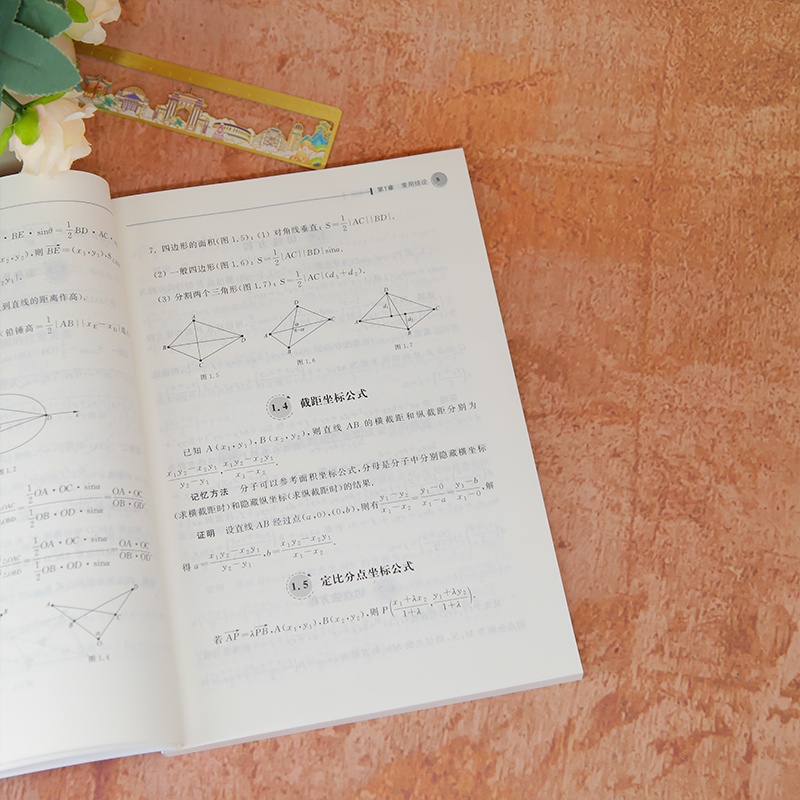 · BE · sinθ = 1/2 BD · AC ·
x₂, y₂), 则 BE⃗ = (x₁, y₁), S
到直线的距离作高).
(铅锤高 = 1/2 |AB| |x_E − x_D|
1.2
1/2 OA · OC · sinα / 1/2 OB · OD · sinα = OA · OC / OB · OD
1/2 OA · OC · sinα / 1/2 OB · OD · sinα = OA · OC / OB · OD
图 1.4
第1章 常用结论
7. 四边形的面积(图 1.5): (1) 对角线垂直: S = 1/2 |AC||BD|.
(2) 一般四边形(图 1.6): S = 1/2 |AC||BD| sinα.
(3) 分割两个三角形(图 1.7): S = 1/2 |AC|(d₁ + d₂).
A B C D
图 1.5
A B C D
图 1.6
A B C D d₁ d₂
图 1.7
1.4 截距坐标公式
已知 A(x₁, y₁), B(x₂, y₂), 则直线 AB 的横截距和纵截距分别为
(x₁y₂ − x₂y₁)/(y₂ − y₁), (x₁y₂ − x₂y₁)/(x₁ − x₂).
记忆方法 分子可以参考面积坐标公式, 分母是分子中分别隐藏横坐标
(求横截距时)和隐藏纵坐标(求纵截距时)的结果.
证明 设直线 AB 经过点(a, 0), (0, b), 则有 (y₁ − y₂)/(x₁ − x₂) = (y₁ − 0)/(x₁ − a) = (y₁ − b)/(x₁ − 0), 解
得 a = (x₁y₂ − x₂y₁)/(y₂ − y₁), b = (x₁y₂ − x₂y₁)/(x₁ − x₂).
1.5 定比分点坐标公式
若 AP⃗ = λPB⃗, A(x₁, y₁), B(x₂, y₂), 则 P((x₁ + λx₂)/(1 + λ), (y₁ + λy₂)/(1 + λ)).